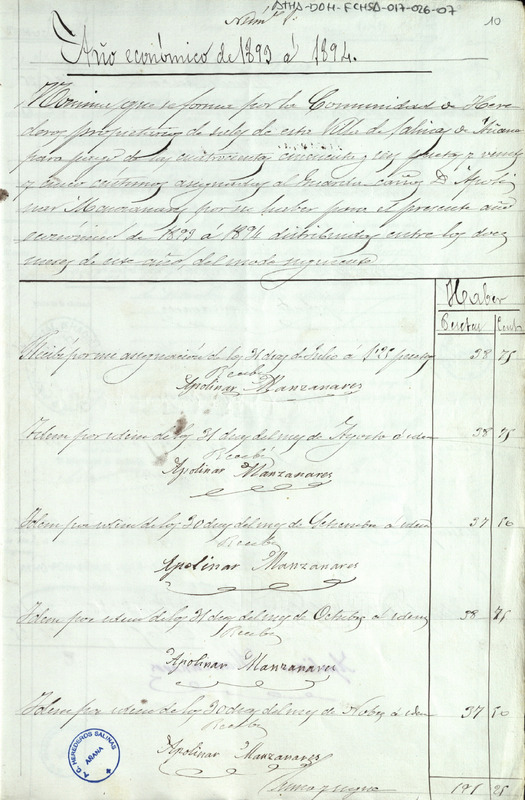 ATHA-DOH-FCHSA-017-026-07
Núm.º 1º
10
Año económico de 1893 á 1894.
Nómina que se forma por la Comunidad de Here-
deros propietarios de sales de esta Villa de Salinas de Añana
para pago de las cuatrocientas cincuenta y seis pesetas y veinte
y cinco céntimos asignadas al Guarda caños D. Apoli-
nar Manzanares por su haber para el presente año
económico de 1893 á 1894 distribuidas entre los doce
meses de este año, del modo siguiente
Haber
Pesetas Cent.
Recibí por mi asignación de los 31 dias de Julio á 1'25 pesetas 38 75
Recibí
Apolinar Manzanares
Idem por idem de los 31 dias del mes de Agosto á idem 38 75
Recibí
Apolinar Manzanares
Idem por idem de los 30 dias del mes de Setiembre á idem 37 50
Recibí
Apolinar Manzanares
Idem por idem de los 31 dias del mes de Octubre á idem 38 75
Recibí
Apolinar Manzanares
Idem por idem de los 30 dias del mes de Nobre á idem 37 50
Recibí
Apolinar Manzanares
Suma y sigue 191 25
A. C. HEREDEROS SALINAS
AÑANA